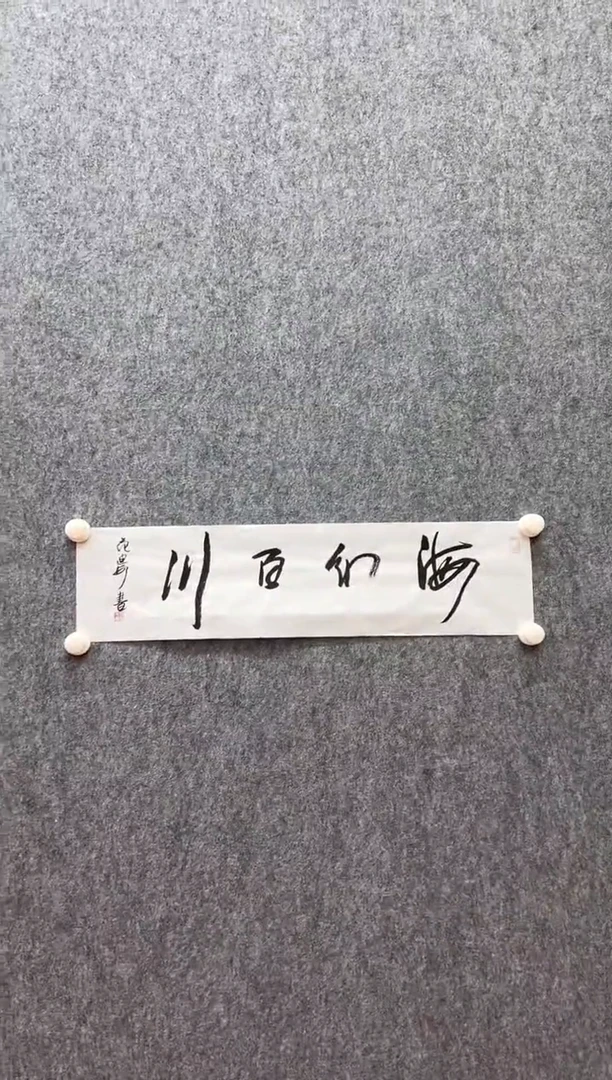 海纳百川
書